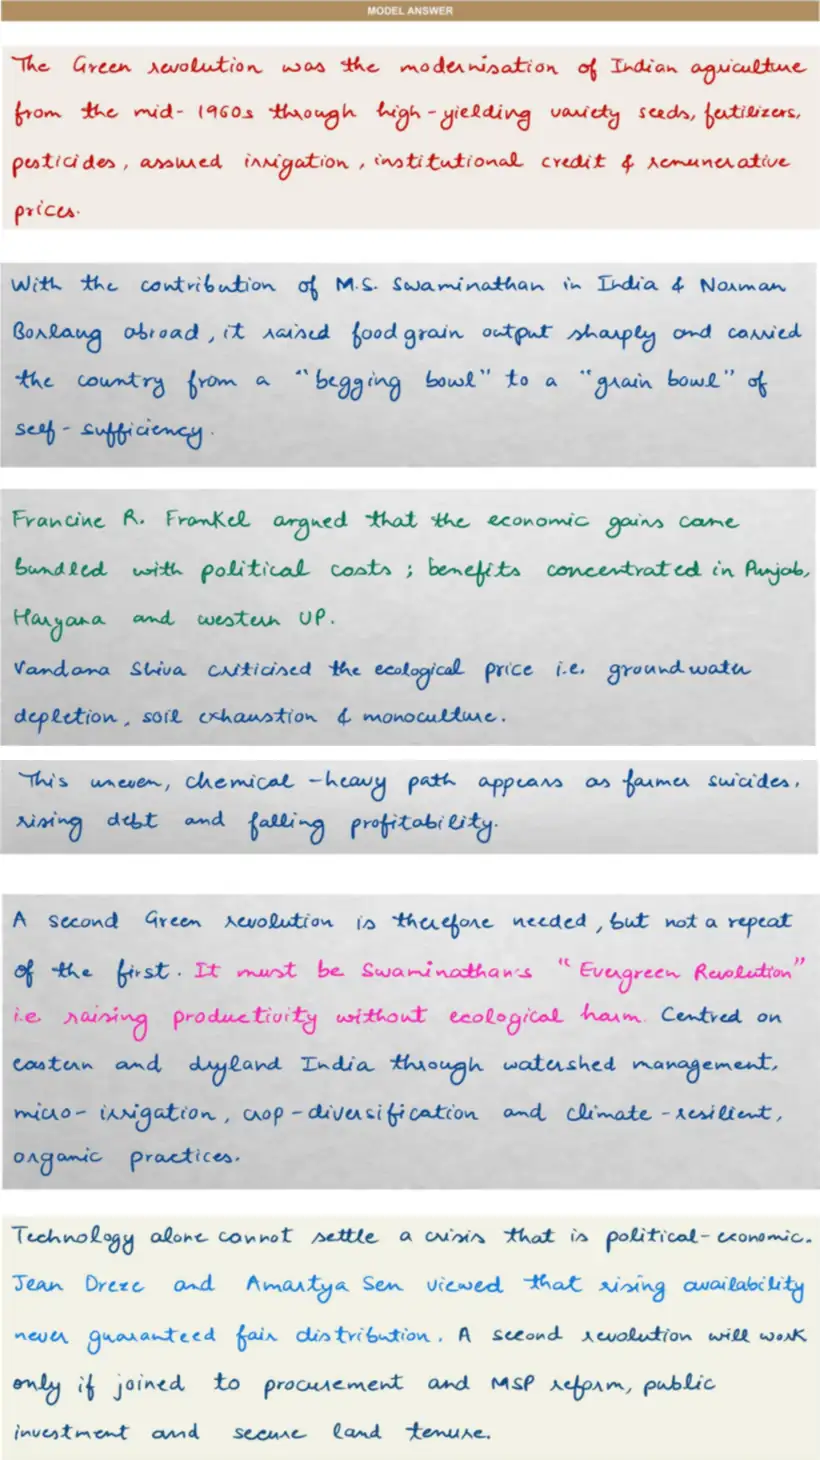 MODEL ANSWER
The Green revolution was the modernisation of Indian agriculture
from the mid-1960s through high-yielding variety seeds, fertilizers,
pesticides, assured irrigation, institutional credit & remunerative
prices.
With the contribution of M.S. Swaminathan in India & Norman
Borlaug abroad, it raised foodgrain output sharply and carried
the country from a "begging bowl" to a "grain bowl" of
self-sufficiency.
Francine R. Frankel argued that the economic gains came
bundled with political costs; benefits concentrated in Punjab,
Haryana and western UP.
Vandana Shiva criticised the ecological price i.e. groundwater
depletion, soil exhaustion & monoculture.
This uneven, chemical-heavy path appears as farmer suicides,
rising debt and falling profitability.
A second Green revolution is therefore needed, but not a repeat
of the first. It must be Swaminathan's "Evergreen Revolution"
i.e. raising productivity without ecological harm. Centred on
eastern and dryland India through watershed management,
micro-irrigation, crop-diversification and climate-resilient,
organic practices.
Technology alone cannot settle a crisis that is political-economic.
Jean Dreze and Amartya Sen viewed that rising availability
never guaranteed fair distribution. A second revolution will work
only if joined to procurement and MSP reform, public
investment and secure land tenure.